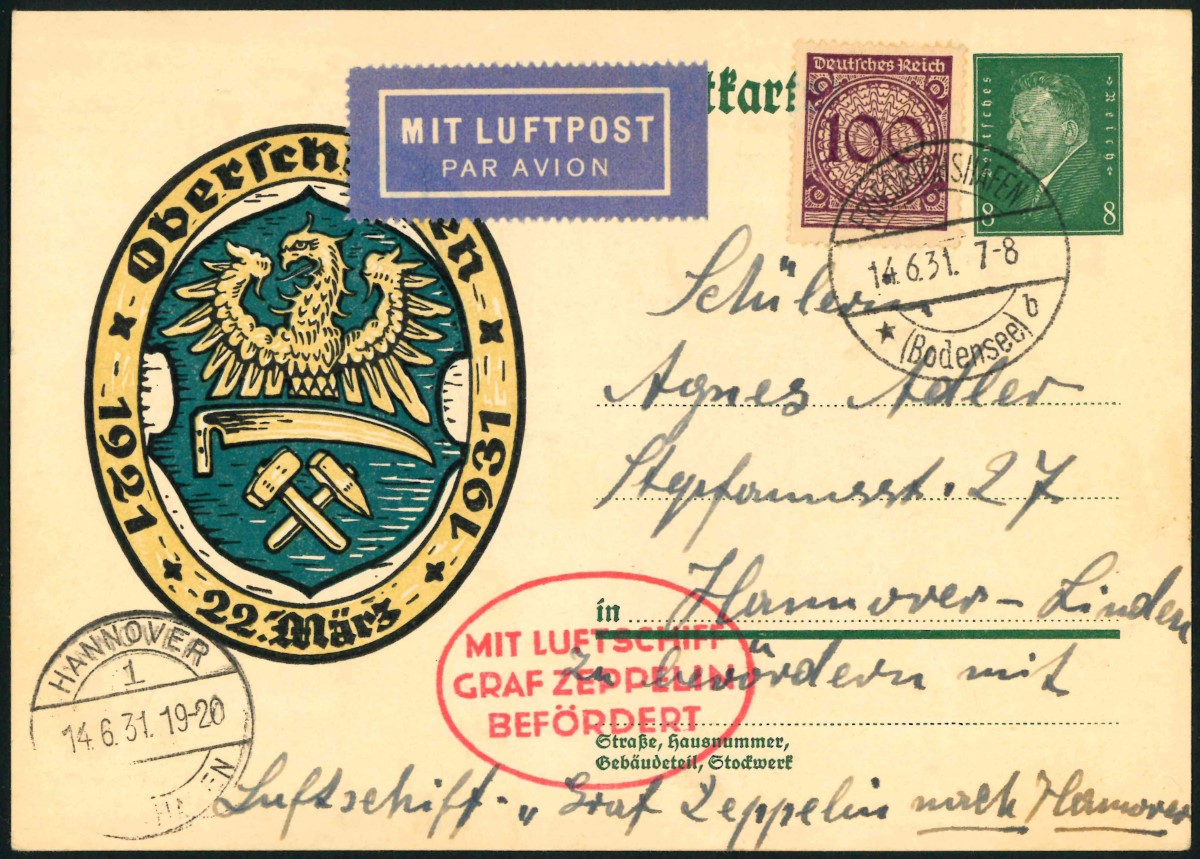 MIT LUFTPOST
PAR AVION
tkart
Deutsches Reich
100
Deutsches Reich
8 8
FRIEDRICHSHAFEN
14.6.31. 7-8
(Bodensee) b
Obersch en
1921 1931
22. März
Schülerin
Agnes Adler
Stephanusstr. 27
in Hannover-Linden
MIT LUFTSCHIFF
GRAF ZEPPELIN
BEFÖRDERT
Zu beördern mit
Straße, Hausnummer,
Gebäudeteil, Stockwerk
Luftschiff „Graf Zeppelin nach Hannover
HANNOVER
1
14.6.31. 19-20